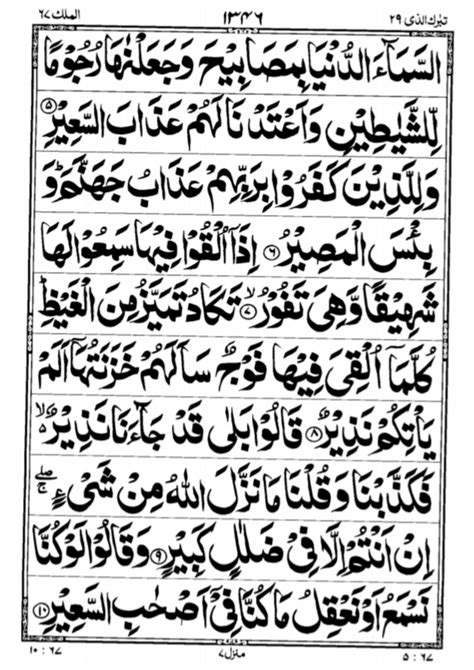 تبٰرك الذی ٢٩ ١٣٤٦ الملك ٦٧
السَّمَآءَ الدُّنْيَا بِمَصَابِيْحَ وَجَعَلْنٰهَا رُجُوْمًا
لِّلشَّيٰطِيْنِ وَاَعْتَدْنَا لَهُمْ عَذَابَ السَّعِيْرِ ۝٥
وَلِلَّذِيْنَ كَفَرُوْا بِرَبِّهِمْ عَذَابُ جَهَنَّمَ ؕ وَ
بِئْسَ الْمَصِيْرُ ۝٦ اِذَاۤ اُلْقُوْا فِيْهَا سَمِعُوْا لَهَا
شَهِيْقًا وَّهِىَ تَفُوْرُ ۙ۝٧ تَكَادُ تَمَيَّزُ مِنَ الْغَيْظِ ؕ
كُلَّمَاۤ اُلْقِىَ فِيْهَا فَوْجٌ سَاَلَهُمْ خَزَنَتُهَاۤ اَلَمْ
يَاْتِكُمْ نَذِيْرٌ ۝٨ قَالُوْا بَلٰى قَدْ جَآءَنَا نَذِيْرٌ ۙ۵
فَكَذَّبْنَا وَقُلْنَا مَا نَزَّلَ اللّٰهُ مِنْ شَىْءٍ ۖۚ
اِنْ اَنْتُمْ اِلَّا فِىْ ضَلٰلٍ كَبِيْرٍ ۝٩ وَقَالُوْا لَوْ كُنَّا
نَسْمَعُ اَوْ نَعْقِلُ مَا كُنَّا فِىْۤ اَصْحٰبِ السَّعِيْرِ ۝١٠
٥ : ٦٧ منزل ٧ ١٠ : ٦٧